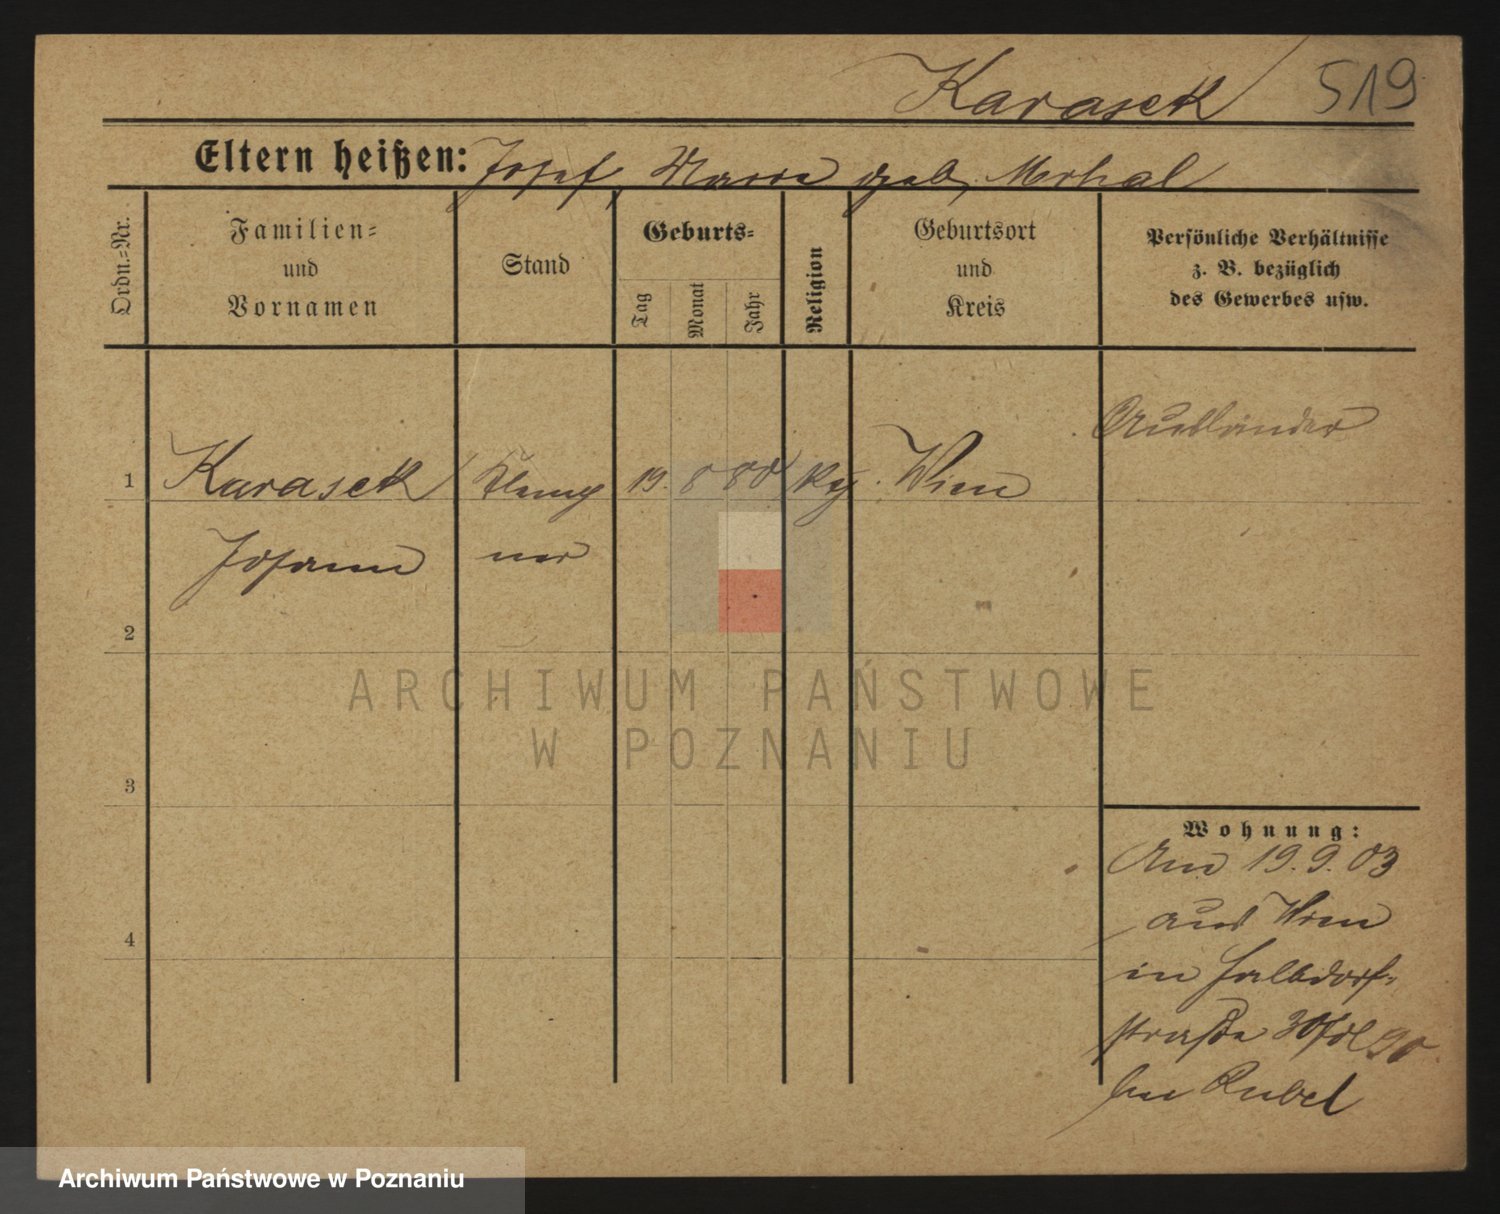 Karasek 519
Eltern heißen: Josef, Marie geb. Mrhal
Ordn.-Nr.
Familien-
und
Vornamen
Stand
Geburts-
Tag
Monat
Jahr
Religion
Geburtsort
und
Kreis
Persönliche Verhältnisse
z. B. bezüglich
des Gewerbes usw.
Ausländer
1 Karasek Klemp 19. 8 80 Wien
Johann ner
2
3
4
ARCHIWUM PAŃSTWOWE
W POZNANIU
Wohnung:
Am 19.9.03
aus Wien
in Halbdorf-
straße 30
bei Rubel
Archiwum Państwowe w Poznaniu